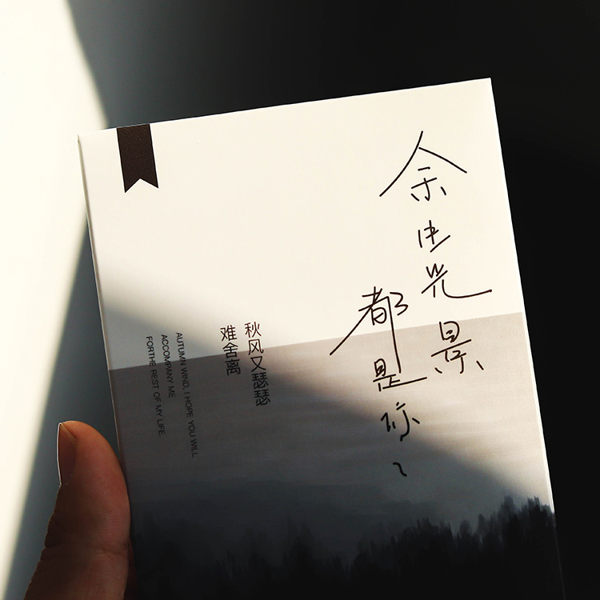 余生光景
都是你
秋风又瑟瑟
难舍离
AUTUMN WIND, I HOPE YOU WILL
ACCOMPANY ME
FORTHE REST OF MY LIFE